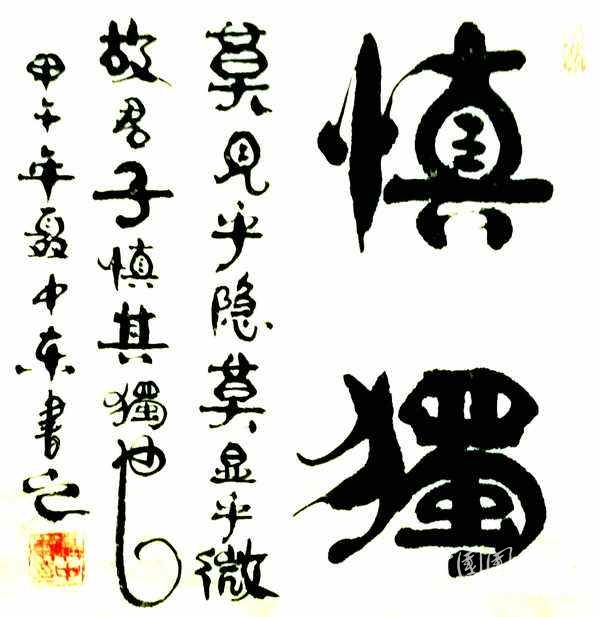 慎獨
莫見乎隐莫显乎微
故君子慎其獨也
甲午年聂中东書之